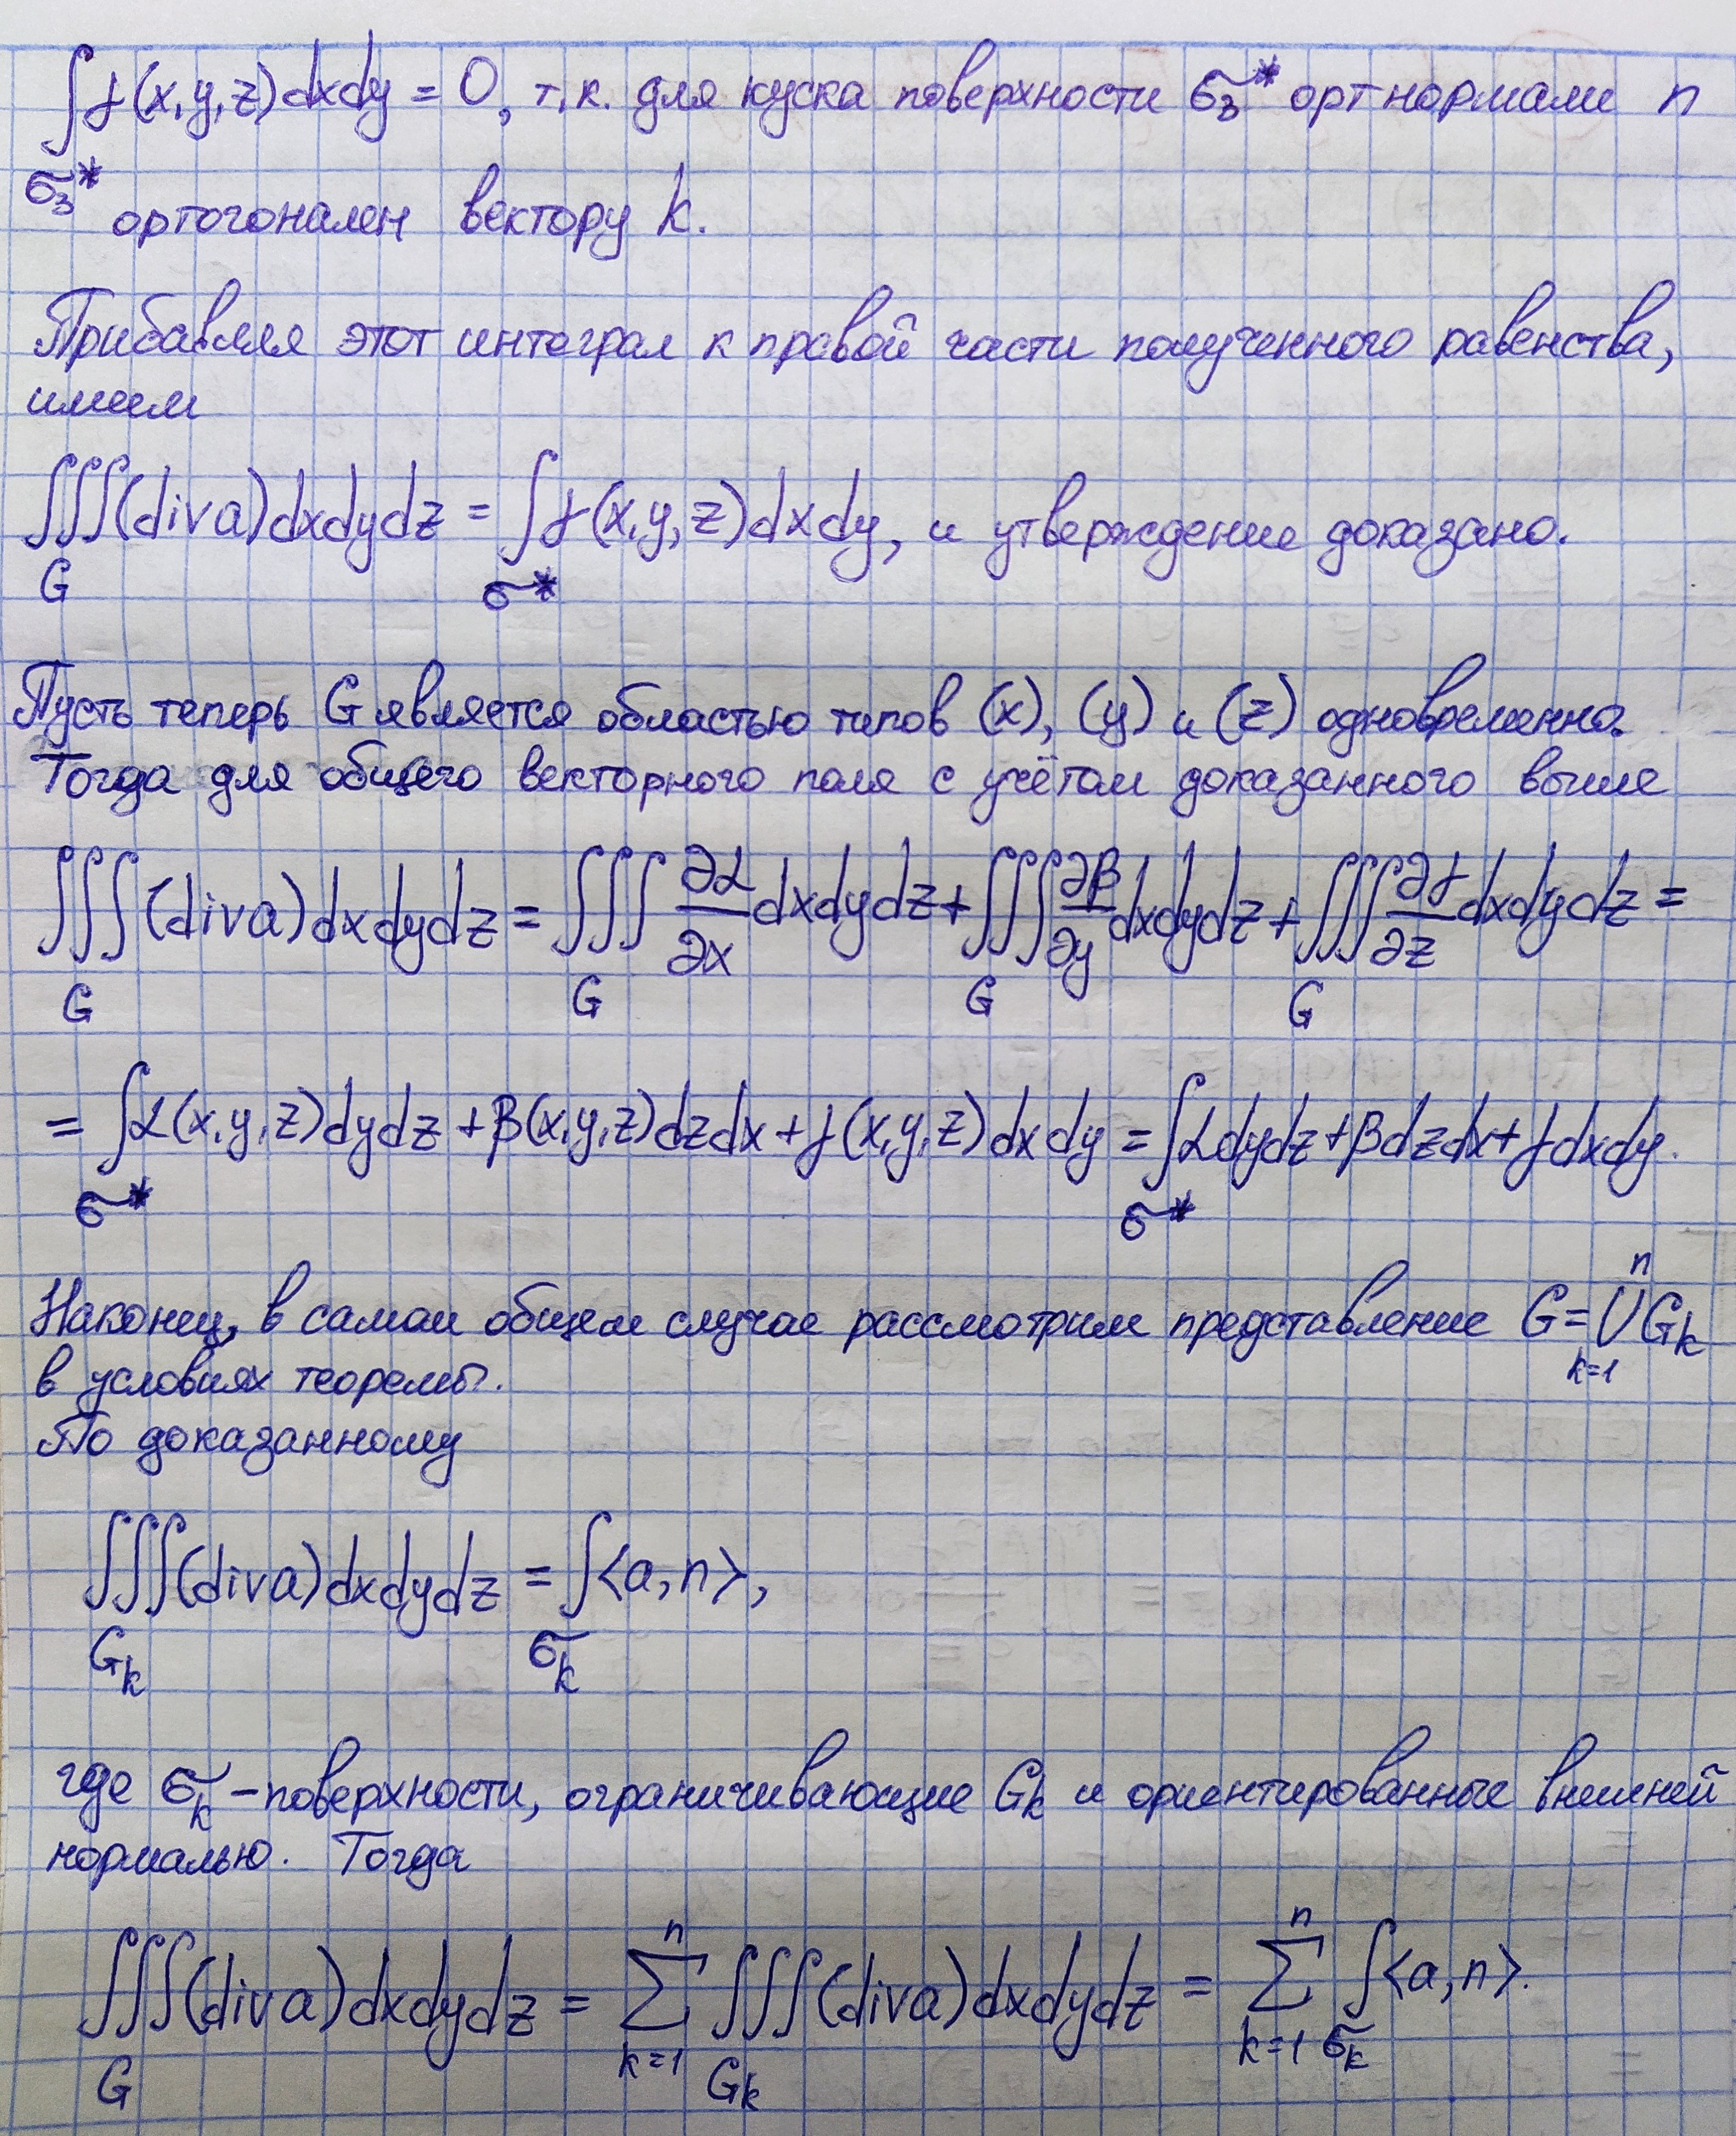 ∫f(x,y,z)dxdy = 0, т.к. для куска поверхности σ₃* орт нормали n
σ₃* ортогонален вектору k.
Прибавляя этот интеграл к правой части полученного равенства,
имеем
∭(div a)dxdydz = ∫f(x,y,z)dxdy, и утверждение доказано.
G σ*
Пусть теперь G является областью типов (x), (y) и (z) одновременно.
Тогда для общего векторного поля с учётом доказанного выше
∭(div a)dxdydz = ∭ ∂α/∂x dxdydz + ∭ ∂β/∂y dxdydz + ∭ ∂f/∂z dxdydz =
G G G G
= ∫α(x,y,z)dydz + β(x,y,z)dzdx + f(x,y,z)dxdy = ∫αdydz + βdzdx + fdxdy.
σ* σ*
Наконец, в самом общем случае рассмотрим представление G = ⋃ₖ₌₁ⁿ Gₖ
в условиях теоремы.
По доказанному
∭(div a)dxdydz = ∫⟨a,n⟩,
Gₖ σₖ
где σₖ – поверхности, ограничивающие Gₖ и ориентированные внешней
нормалью. Тогда
∭(div a)dxdydz = ∑ₖ₌₁ⁿ ∭(div a)dxdydz = ∑ₖ₌₁ⁿ ∫⟨a,n⟩.
G Gₖ σₖ